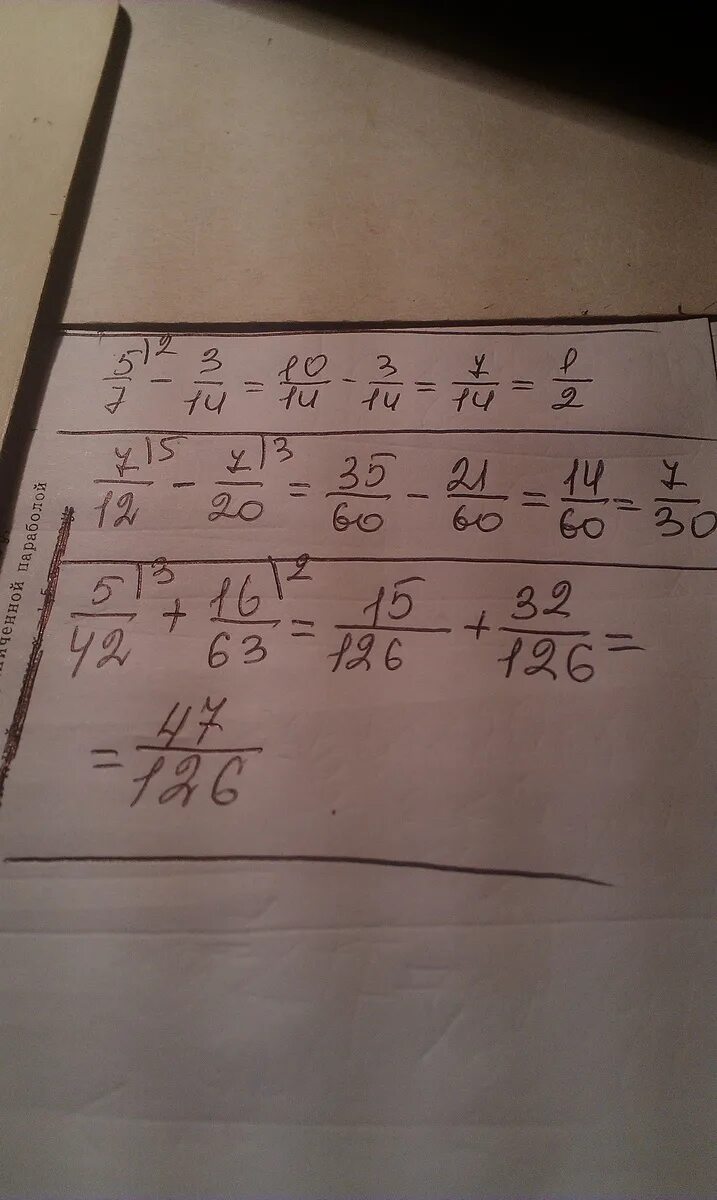 5/7|2 - 3/14 = 10/14 - 3/14 = 7/14 = 1/2
7/12|5 - 7/20|3 = 35/60 - 21/60 = 14/60 = 7/30
5/42|3 + 16/63|2 = 15/126 + 32/126 =
= 47/126
параболой